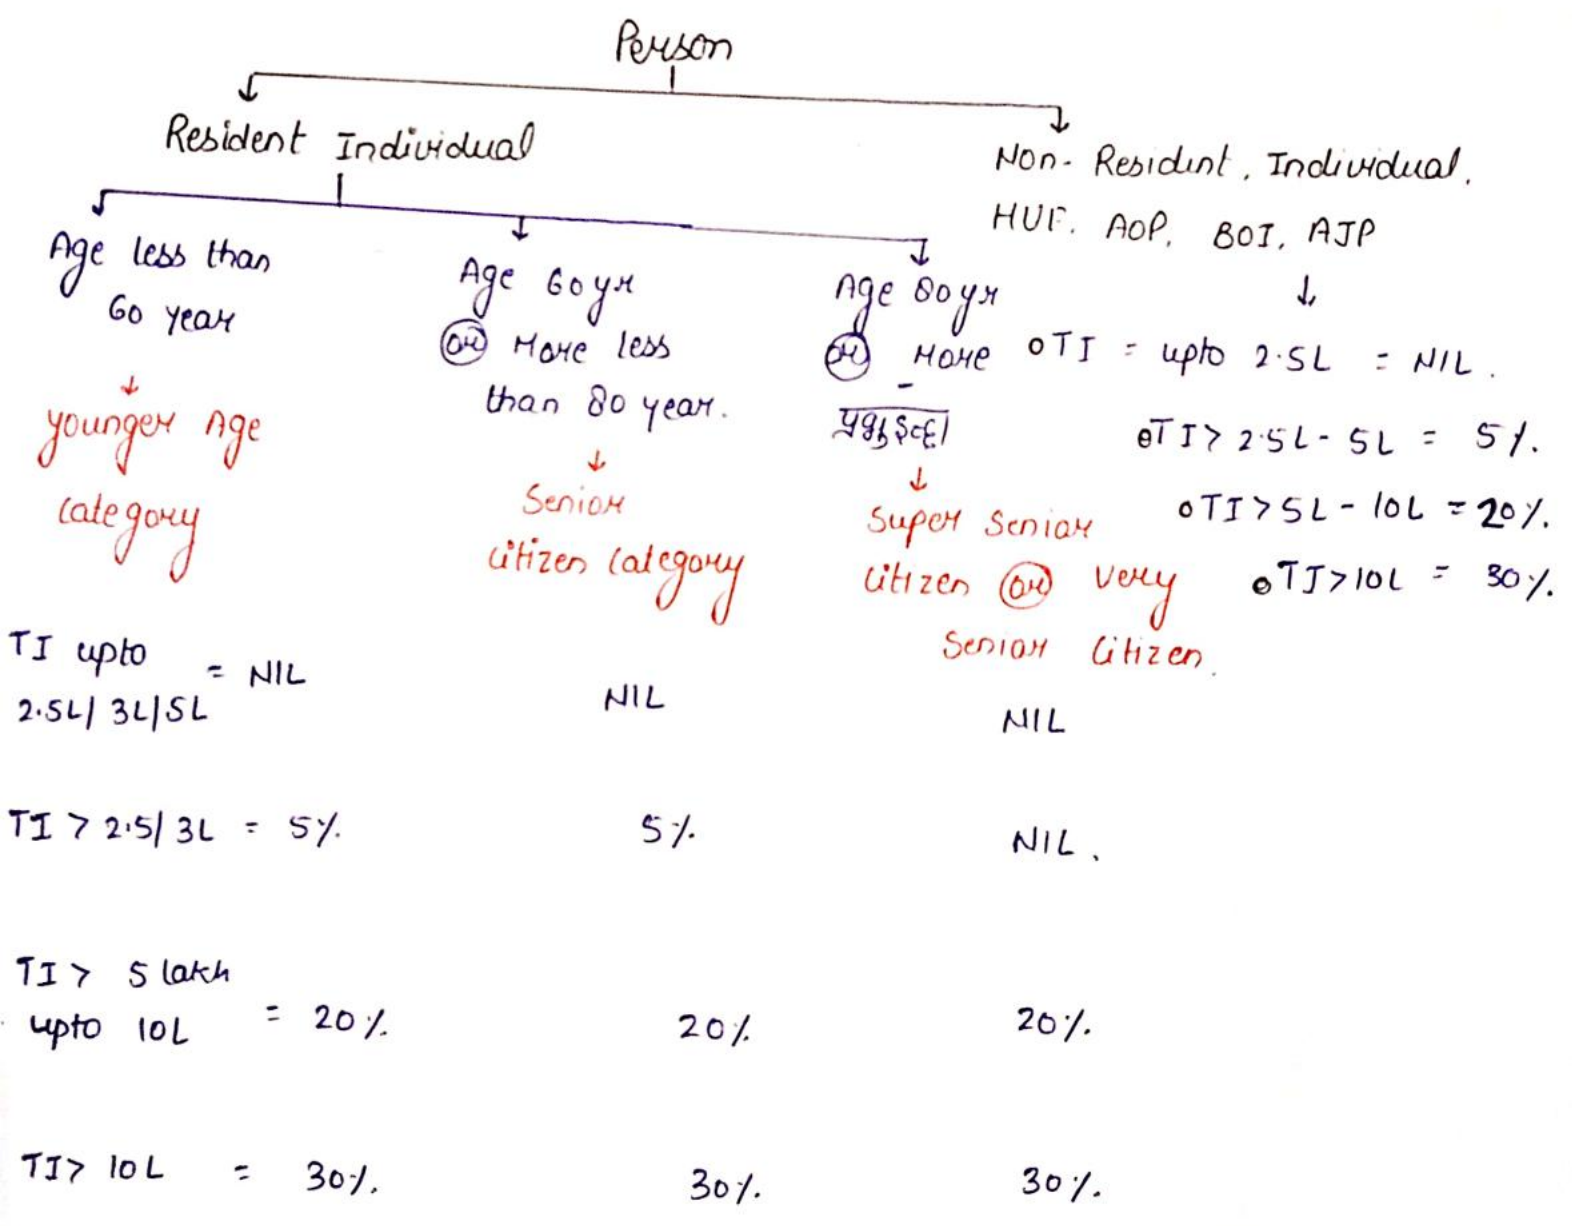 Person
Resident Individual
Non- Resident, Individual,
HUF, AOP, BOI, AJP
Age less than
60 year
younger Age
category
Age 60yr
OR More less
than 80 year.
Senior
citizen category
Age 80yr
OR More
Super Senior
citizen OR very
Senior Citizen.
TI = upto 2.5L = NIL.
TI > 2.5L - 5L = 5%.
TI > 5L - 10L = 20%.
TI > 10L = 30%.
TI upto
2.5L/ 3L/5L = NIL NIL NIL
TI > 2.5/ 3L = 5% 5% NIL.
TI > 5 lakh
upto 10L = 20% 20% 20%.
TI > 10L = 30%. 30%. 30%.